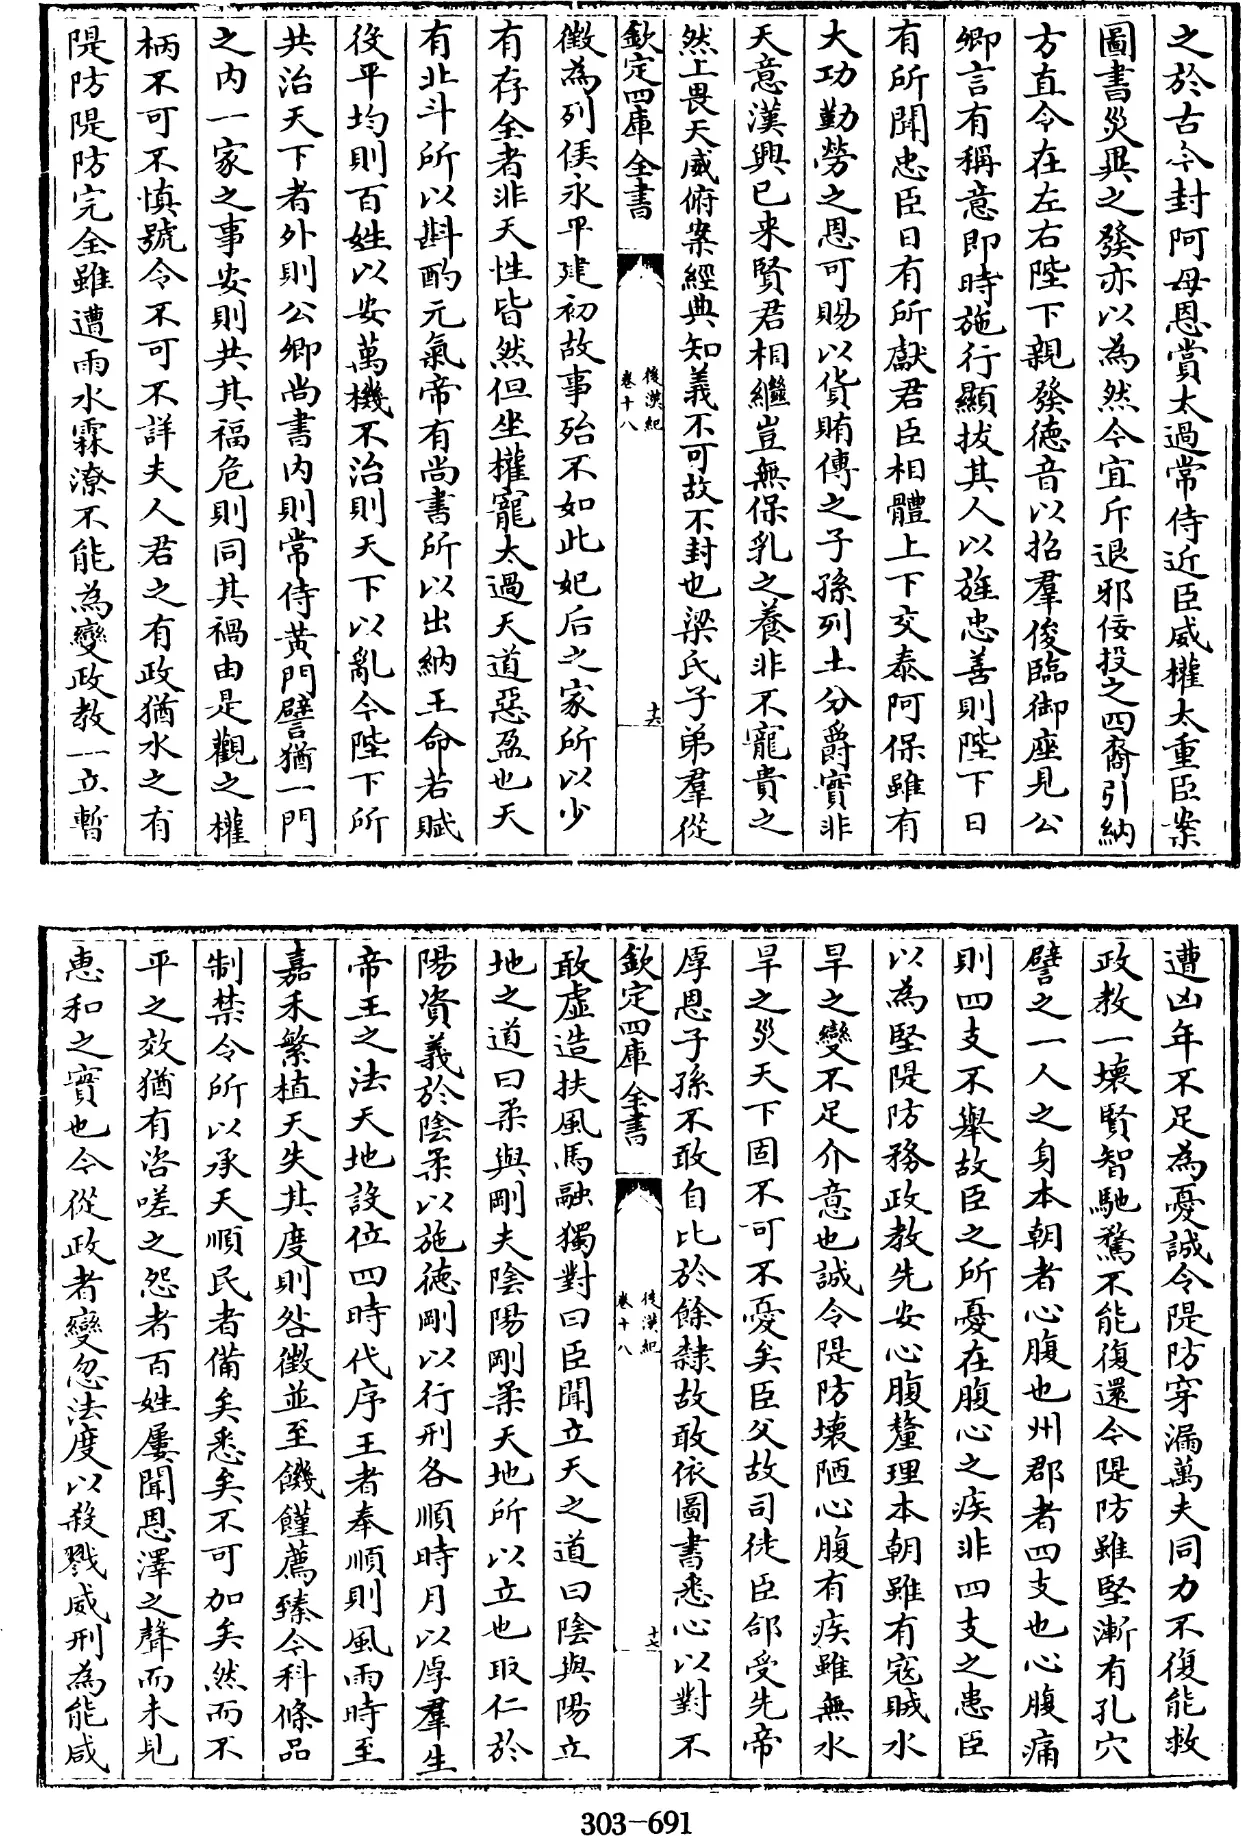 之於古今封阿母恩賞太過常侍近臣威權太重臣案
圖書災異之發亦以為然今宜斥退邪佞投之四裔引納
方直令在左右陛下親發德音以招羣俊臨御座見公
卿言有稱意即時施行顯拔其人以旌忠善則陛下日
有所聞忠臣日有所獻君臣相體上下交泰阿保雖有
大功勤勞之恩可賜以貨賄傳之子孫列土分爵實非
天意漢興已来賢君相繼豈無保乳之養非不寵貴之
然上畏天威俯案經典知義不可故不封也梁氏子弟羣從
欽定四庫全書
後漢紀
卷十八
十六
徵為列侯永平建初故事殆不如此妃后之家所以少
有存全者非天性皆然但坐權寵太過天道惡盈也天
有北斗所以斟酌元氣帝有尚書所以出納王命若賦
役平均則百姓以安萬機不治則天下以亂今陛下所
共治天下者外則公卿尚書内則常侍黄門譬猶一門
之内一家之事安則共其福危則同其禍由是觀之權
柄不可不慎號令不可不詳夫人君之有政猶水之有
隄防隄防完全雖遭雨水霖潦不能為變政教一立暫
遭凶年不足為憂誠令隄防穿漏萬夫同力不復能救
政教一壞賢智馳騖不能復還今隄防雖堅漸有孔穴
譬之一人之身本朝者心腹也州郡者四支也心腹痛
則四支不舉故臣之所憂在腹心之疾非四支之患臣
以為堅隄防務政教先安心腹釐理本朝雖有寇賊水
旱之變不足介意也誠令隄防壞陋心腹有疾雖無水
旱之災天下固不可不憂矣臣父故司徒臣郃受先帝
厚恩子孫不敢自比於餘隸故敢依圖書悉心以對不
欽定四庫全書
後漢紀
卷十八
十七
敢虛造扶風馬融獨對曰臣聞立天之道曰陰與陽立
地之道曰柔與剛夫陰陽剛柔天地所以立也取仁於
陽資義於陰柔以施德剛以行刑各順時月以厚羣生
帝王之法天地設位四時代序王者奉順則風雨時至
嘉禾繁植天失其度則咎徵並至饑饉薦臻今科條品
制禁令所以承天順民者備矣悉矣不可加矣然而不
平之效猶有咨嗟之怨者百姓屢聞恩澤之聲而未見
恵和之實也今從政者變忽法度以殺戮威刑為能咸
303-691